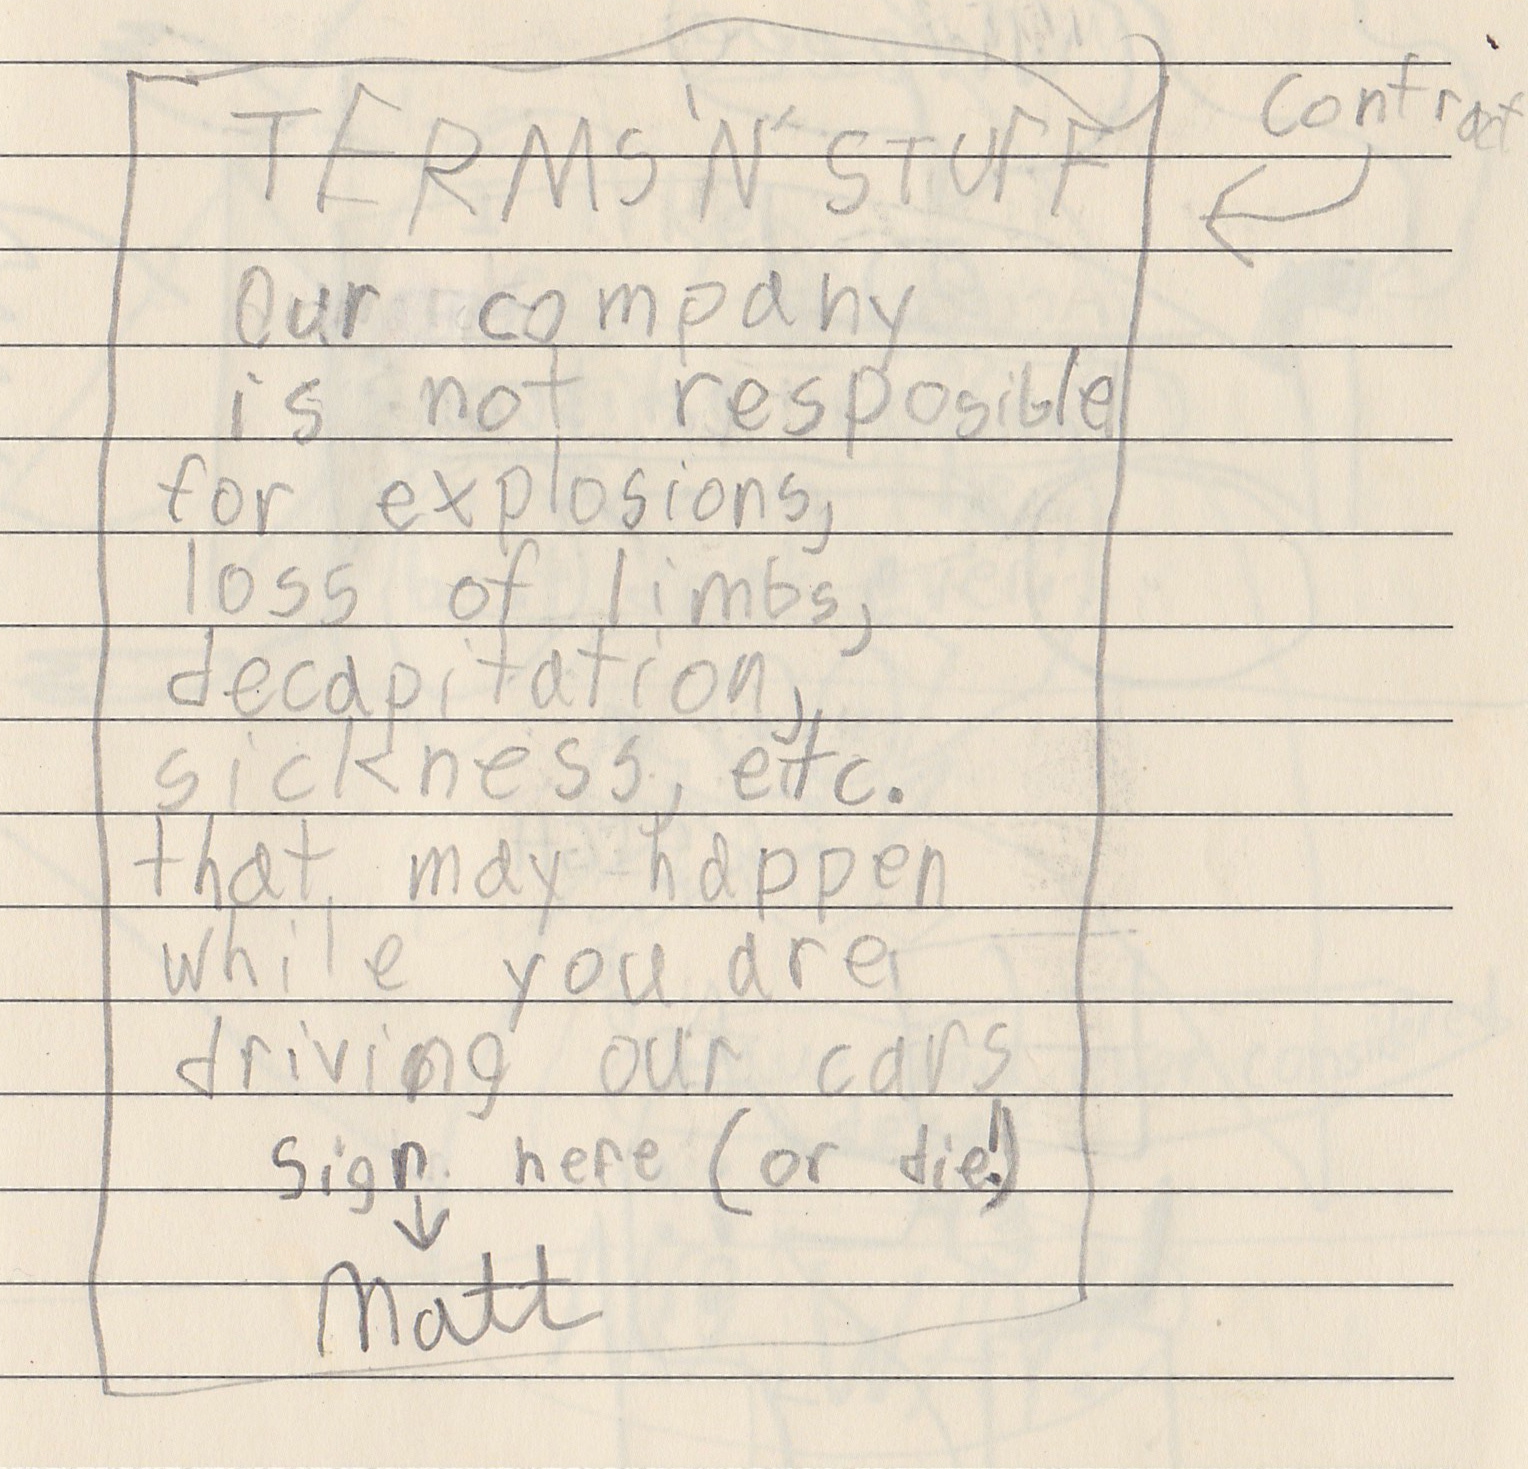 TERMS 'N' STUFF
contract
Our company
is not resposible
for explosions,
loss of limbs,
decapitation,
sickness, etc.
that may happen
while you are
driving our cars
Sign here (or die!)
Matt